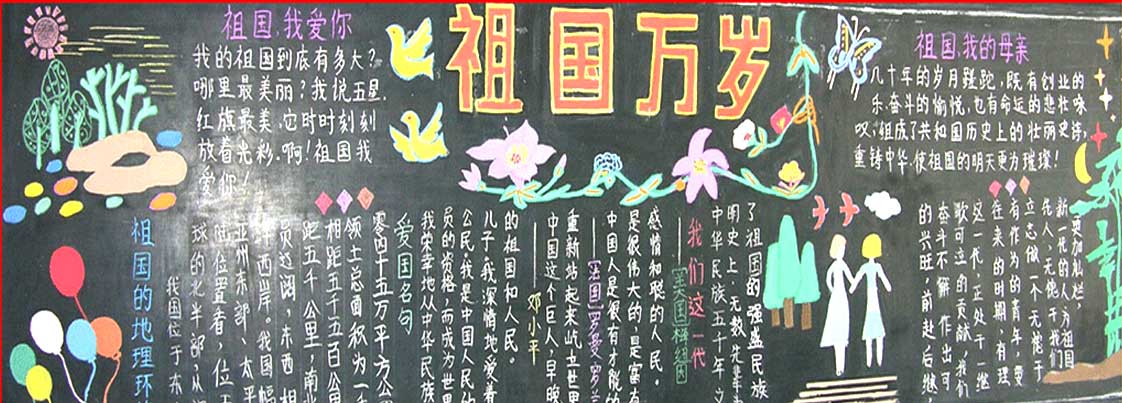 祖国万岁
祖国,我爱你
我的祖国到底有多大?
哪里最美丽?我说五星
红旗最美,它时时刻刻
放着光彩.啊!祖国我
爱你!
祖国,我的母亲
几十年的岁月蹉跎,既有创业的
乐,奋斗的愉悦,也有命运的悲壮咏
叹,组成了共和国历史上的壮丽史诗,
重铸中华.使祖国的明天更为璀璨!
我们这一代
新一代的人,为祖国
立志做一个无愧于
有作为的青年,要
在未来的时期,有理
这一代,正处于一继
歌可泣的贡献,我们
奋斗不懈,作出可
的兴旺,前赴后继
了祖国的强盛民族
明史上,无数先辈
中华民族五千年文
爱国名句
感情和聪的人民。
是很伟大的,是富有
中国人是很有才能的
重新站起来屹立世界
中国这个巨人,早晚
——邓小平
的祖国和人民。
儿子,我深情地爱着
公民,我是中国人民的
员的资格,而成为世界
我荣幸地从中华民族
祖国的地理环
我国位于东
球的北半部,从
陆位置看,位于
亚洲东部、太平
洋西岸。我国幅
员辽阔,东西相
距五千公里,南北
相距五千五百公里
领土总面积为一千
零四十五万平方公